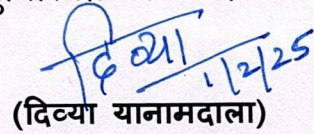 दिव्या
1/2/25
(दिव्या यानामदाला)